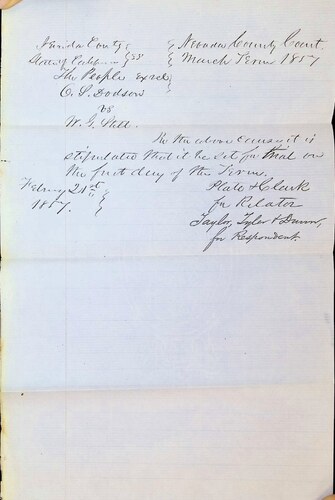 Nevada County } Nevada County Court
State of California } SS } March Term 1857
The People exrel
O. S. Dodson
vs
W. G. Still
In the above cause, it is
stipulated that it be set for trial on
the first day of the Term.
February 21st
1857.
Plate & Clark
for Relator
Taylor, Tyler & Dunn,
for Respondent.